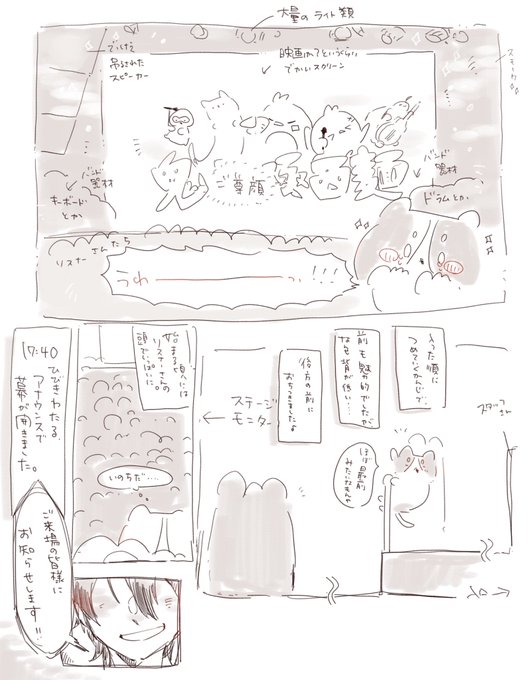 大量のライト類
でっけえ
吊るされた
スピーカー
映画館かってくらい
でかいスクリーン
スモーク
バンド
器材
キーボード
とか
ご尊顔
バンド
器材
ドラムとか
リスナーさんたち
うわーっ!!!
入った順に
つめていくかんじで、
前も魅力的でしたが
なを背が低い…
後方の前に
おちつきましたよ
スタッフ
さん
ほぼ最前
みたいなもんや
ステージ
モニター
入口→
始まる頃には
リスナーさんの
頭でいっぱいに。
いのちだ…
17:40
ひびきわたる、
アナウンスで
幕が開きました。
ご来場の皆様に
お知らせします!!